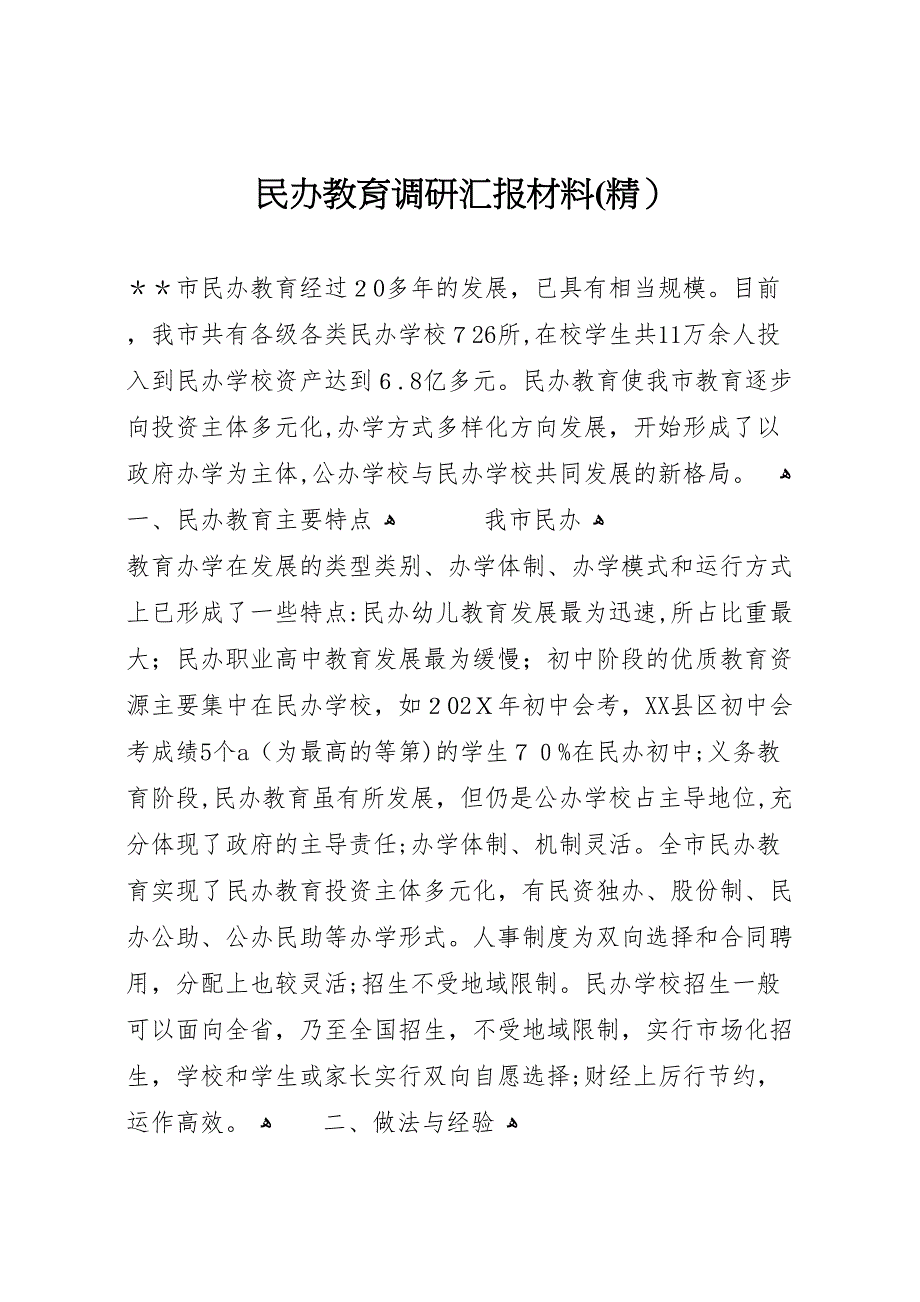 民办教育调研汇报材料(精）
＊＊市民办教育经过２0多年的发展，已具有相当规模。目前
，我市共有各级各类民办学校７26所,在校学生共11万余人投
入到民办学校资产达到６.8亿多元。民办教育使我市教育逐步
向投资主体多元化,办学方式多样化方向发展，开始形成了以
政府办学为主体,公办学校与民办学校共同发展的新格局。 ﻫ
一、民办教育主要特点 ﻫ 我市民办 ﻫ
教育办学在发展的类型类别、办学体制、办学模式和运行方式
上已形成了一些特点:民办幼儿教育发展最为迅速,所占比重最
大；民办职业高中教育发展最为缓慢；初中阶段的优质教育资
源主要集中在民办学校，如２02Ｘ年初中会考，XX县区初中会
考成绩5个a（为最高的等第)的学生７０%在民办初中;义务教
育阶段,民办教育虽有所发展，但仍是公办学校占主导地位,充
分体现了政府的主导责任;办学体制、机制灵活。全市民办教
育实现了民办教育投资主体多元化，有民资独办、股份制、民
办公助、公办民助等办学形式。人事制度为双向选择和合同聘
用，分配上也较灵活;招生不受地域限制。民办学校招生一般
可以面向全省，乃至全国招生，不受地域限制，实行市场化招
生，学校和学生或家长实行双向自愿选择;财经上厉行节约，
运作高效。 ﻫ 二、做法与经验 ﻫ